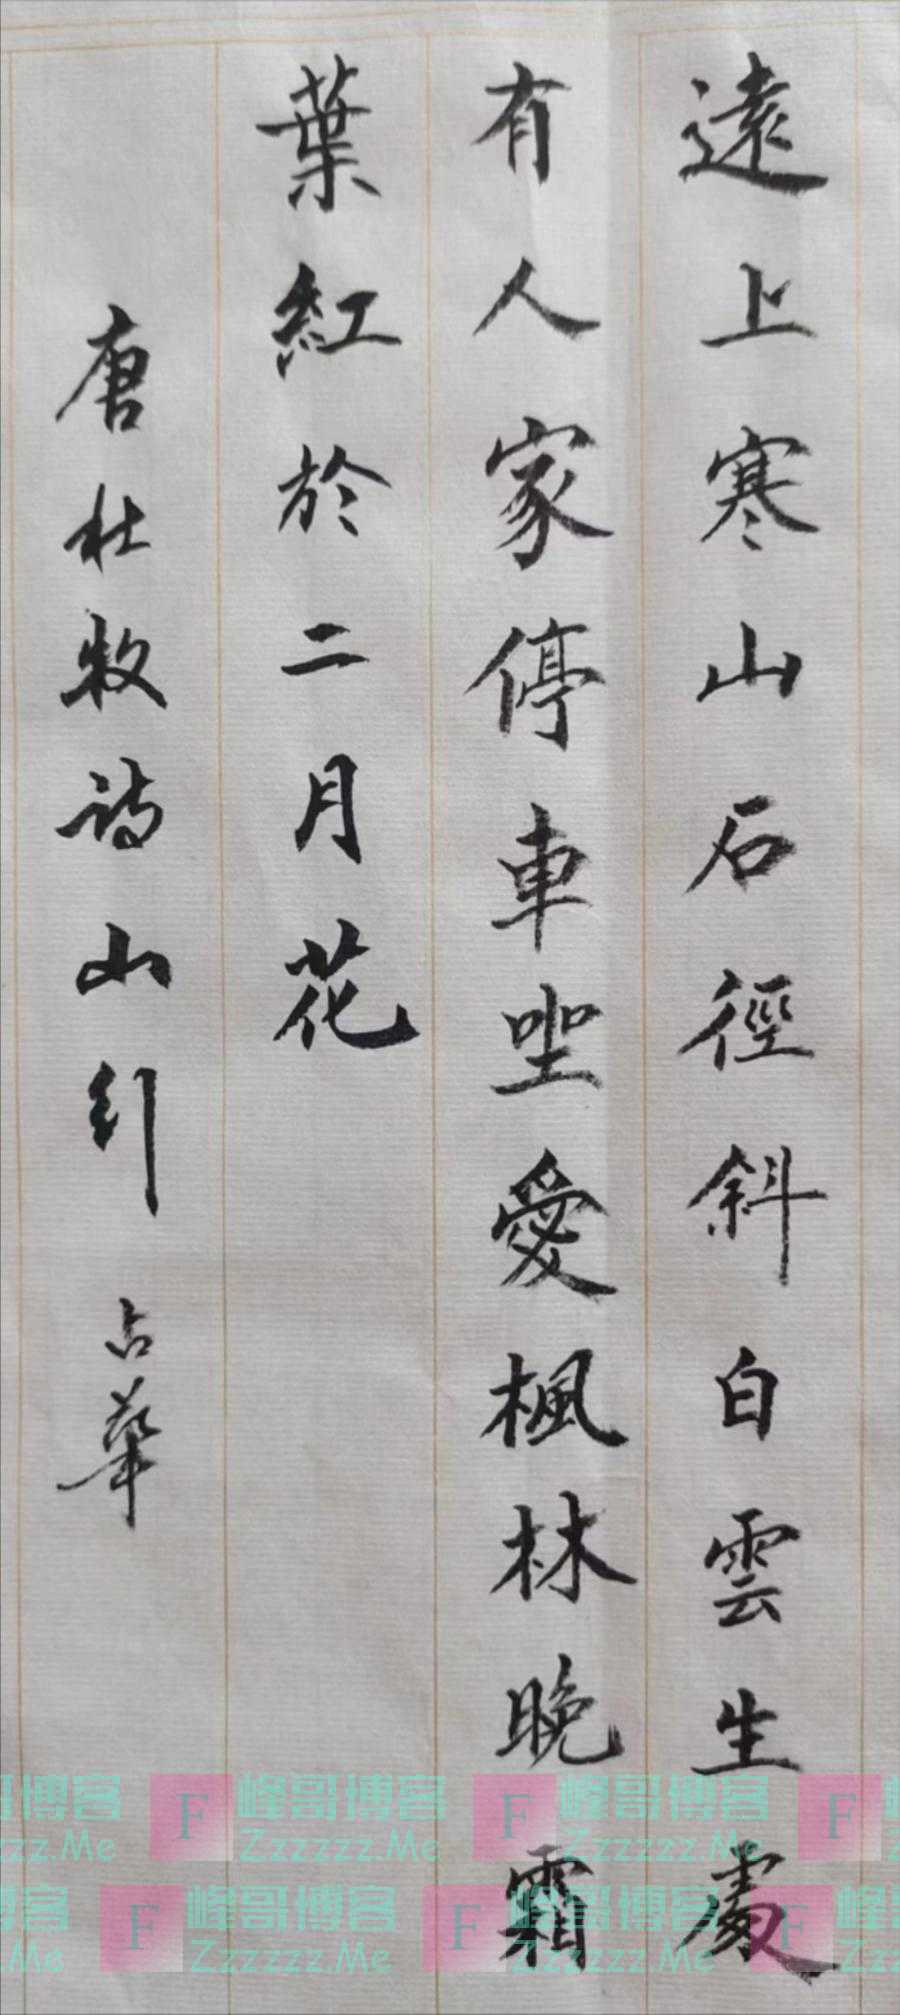 遠上寒山石徑斜白雲生處
有人家停車坐愛楓林晚霜
葉紅於二月花
唐杜牧詩山行 占華
峰哥博客
Zzzzzz.Me
F 峰哥博客
Zzzzzz.Me
F 峰哥博客
Zzzzzz.Me
F
F 峰哥博客
Zzzzzz.Me
F 峰哥博客
Zzzzzz.Me
F